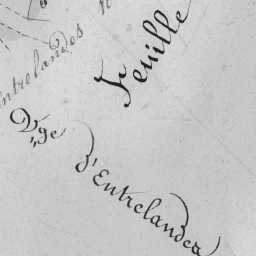 Entrelandes
Feuille
Vge
d'Entrelandes